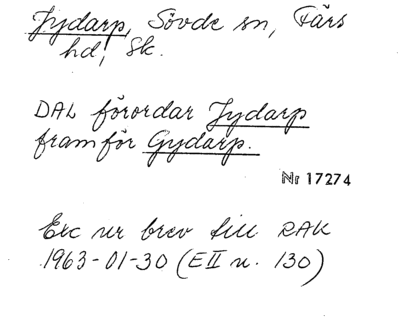 Jydarp, Sövde sn, Färs
hd, Sk.
DAL förordar Jydarp
framför Gydarp.
Nr 17274
Exc ur brev till RAK
1963-01-30 (E II u. 130)